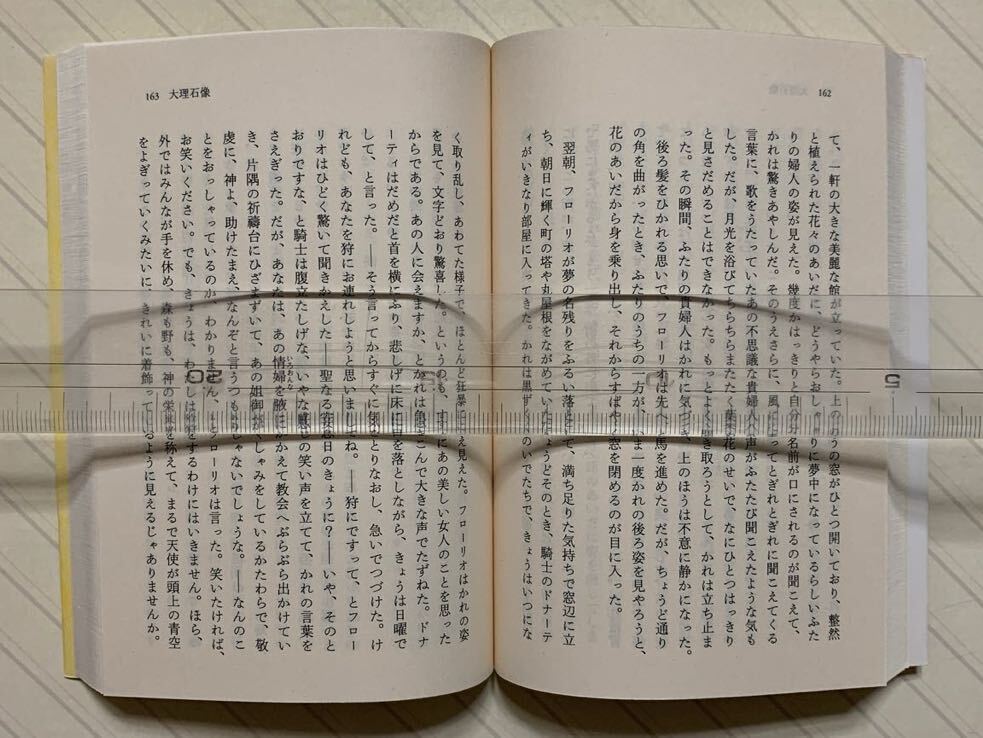 162
て、一軒の大きな美麗な館が立っていた。上のほうの窓がひとつ開いており、整然
と植えられた花々のあいだに、どうやらおしゃべりに夢中になっているらしいふた
りの婦人の姿が見えた。幾度かはっきりと自分の名前が口にされるのが聞こえて、
かれは驚きあやしんだ。そのうえさらに、風によってとぎれとぎれに聞こえてくる
言葉に、歌をうたっていたあの不思議な貴婦人の声がふたたび聞こえたような気も
した。だが、月光を浴びてちらちらまたたく葉や花のせいで、なにひとつはっきり
と見さだめることはできなかった。もっとよく聞き取ろうとして、かれは立ち止ま
った。その瞬間、ふたりの貴婦人はかれに気づき、上のほうは不意に静かになった。
後ろ髪をひかれる思いで、フローリオは先へ馬を進めた。だが、ちょうど通り
の角を曲がったとき、ふたりのうちの一方が、いま一度かれの後ろ姿を見やろうと、
花のあいだから身を乗り出し、それからすばやく窓を閉めるのが目に入った。
翌朝、フローリオが夢の名残りをふるい落として、満ち足りた気持ちで窓辺に立
ち、朝日に輝く町の塔や丸屋根をながめていたちょうどそのとき、騎士のドナーテ
ィがいきなり部屋に入ってきた。かれは黒ずくめのいでたちで、きょうはいつにな
163 大理石像
く取り乱し、あわてた様子で、ほとんど狂暴にさえ見えた。フローリオはかれの姿
を見て、文字どおり驚喜した。というのも、すぐにあの美しい女人のことを思った
からである。あの人に会えますか、とかれは急きこんで大きな声でたずねた。ドナ
ーティはだめだと首を横にふり、悲しげに床に目を落としながら、きょうは日曜で
して、と言った。――そう言ってからすぐに気をとりなおし、急いでつづけた。け
れども、あなたを狩にお連れしようと思いましてね。――狩にですって、とフロー
リオはひどく驚いて聞きかえした――聖なる安息日のきょうに?――いや、そのと
おりですな、と騎士は腹立たしげな、いやな感じの笑い声を立てて、かれの言葉を
さえぎった。だが、あなたは、あの情婦を腋にかかえて教会へぶらぶら出かけてい
いろおんな
き、片隅の祈禱台にひざまずいて、あの姐御がくしゃみをしているかたわらで、敬
虔に、神よ、助けたまえ、なんぞと言うつもりじゃないでしょうな。――なんのこ
とをおっしゃっているのか、わかりません、とフローリオは言った。笑いたければ、
お笑いください。でも、きょうは、わたしは狩をするわけにはいきません。ほら、
外ではみんなが手を休め、森も野も、神の栄光を称えて、まるで天使が頭上の青空
をよぎっていくみたいに、きれいに着飾っているように見えるじゃありませんか。